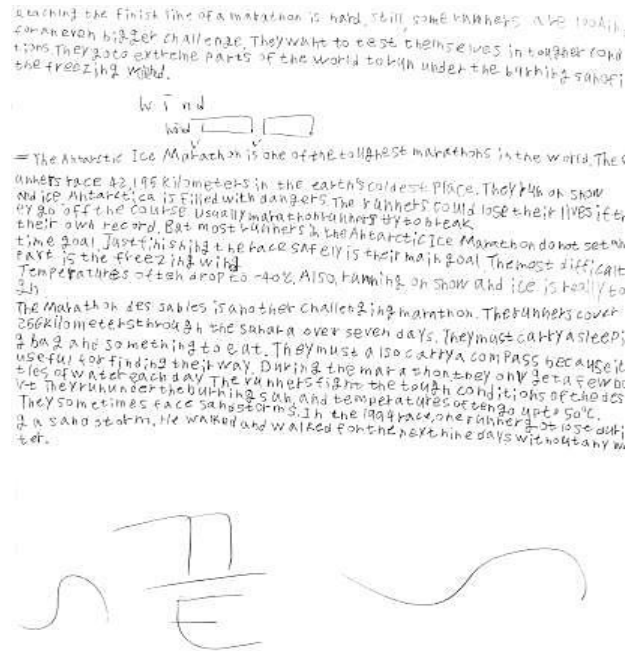 eaching the finish line of a marathon is hard. still, some runners are lookin
for an even bigger challenge. They want to test themselves in tougher cond
tions. They go to extreme parts of the world to run under the burning sun or i
the freezing wind.
wind
wind
= The Antarctic Ice Marathon is one of the toughest marathons in the world. The
unners race 42,195 kilometers in the earth's coldest place. They run on snow
and ice. Antarctica is filled with dangers. The runners could lose their lives if th
ey go off the course. Usually marathon runners try to break
their own record. But most runners in the Antarctic Ice Marathon do not set an
time goal. Just finishing the race safely is their main goal. The most difficult
part is the freezing wind
Temperatures often drop to -40℃. Also, running on snow and ice is really to
gh
The Marathon des sables is another challenging marathon. The runners cover
256 kilometers through the sahara over seven days. They must carry a sleepi
g bag and something to eat. They must also carry a compass because it
useful for finding their way. During the marathon, they only get a few bo
tles of water each day. The runners fight the tough conditions of the des
rt They run under the burning sun, and temperatures often go up to 50℃.
They sometimes face sandstorms. In the 1994 race, one runner got lost duri
g a sand storm. He walked and walked for the next nine days without any w
ter.